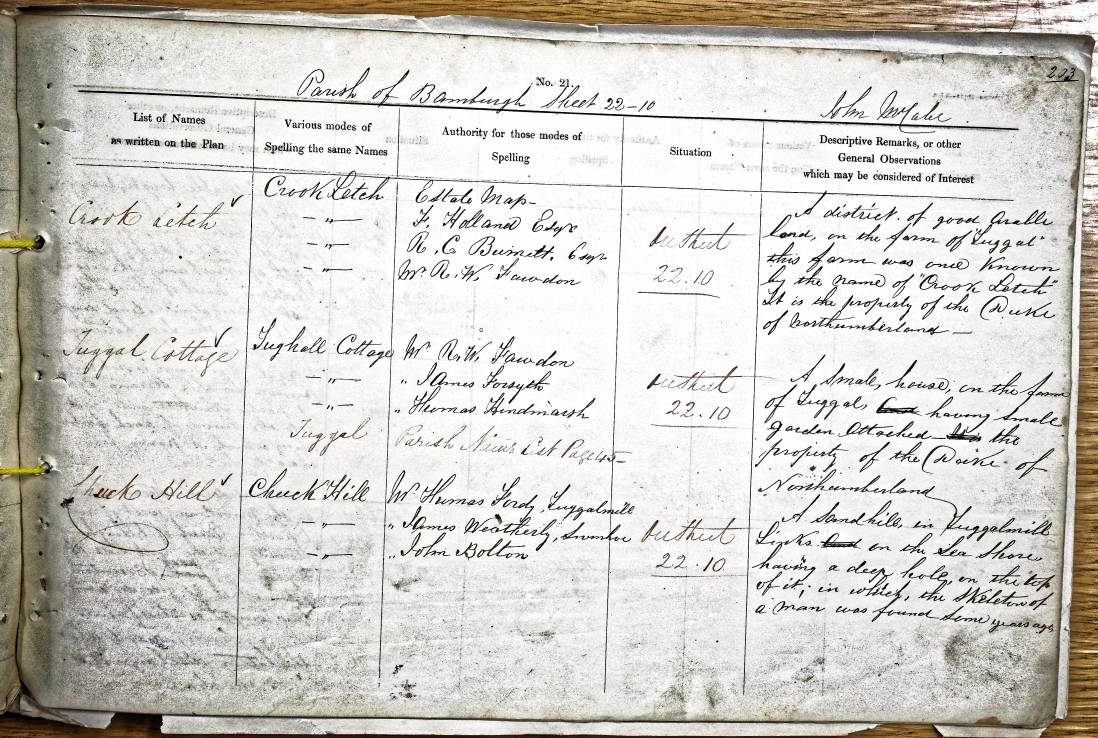 223
No. 21.
Parish of Bamburgh Sheet 22-10
John McCabe.
List of Names
as written on the Plan
Various modes of
Spelling the same Names
Authority for those modes of
Spelling
Situation
Descriptive Remarks, or other
General Observations
which may be considered of Interest
Crook Letch
Crook Letch
— " —
— " —
— " —
Estate Map —
F. Holland Esqr
R. C. Burnett. Esqr
Mr. R. W. Fawdon
22.10
A district of good Arable
land, on the farm of "Tuggal"
this farm was once Known
by the name of "Crook Letch"
It is the property of the Duke
of Northumberland —
Tuggal Cottage
Tughall Cottage
— " —
— " —
Tuggal
Mr R. W. Fawdon
" James Forsyth
" Thomas Hindmarsh
Parish List Page 45
22.10
A Small, house, on the farm
of Tuggal, having small
garden Attached the
property of the Duke of
Northumberland
Chuck Hill
Chuck Hill
— " —
— " —
Mr Thomas Fordy, Tuggalmill
" James Weatherly, Swinhoe
" John Bolton
22.10
A Sandhill, in Tuggalmill
Links on the Sea Shore
having a deep hole, on the top
of it; in which, the Skeleton of
a man was found some years ago,